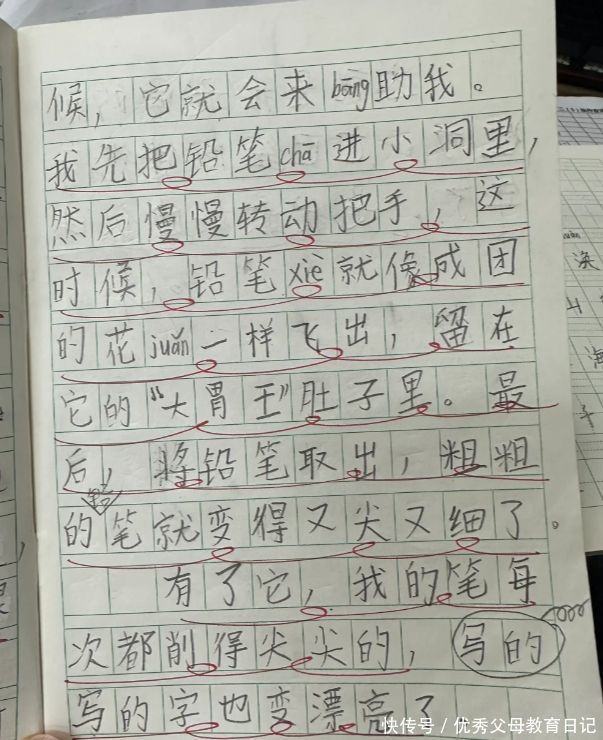 候，它就会来bāng助我。
我先把铅笔chā进小洞里，
然后慢慢转动把手，这
时候，铅笔xiè就像成团
的花juǎn一样飞出，留在
它的“大胃王”肚子里。最
后，将铅笔取出，粗粗
铅
的笔就变得又尖又细了。
有了它，我的笔每
次都削得尖尖的，写的
写的字也变漂亮了
快传号／优秀父母教育日记